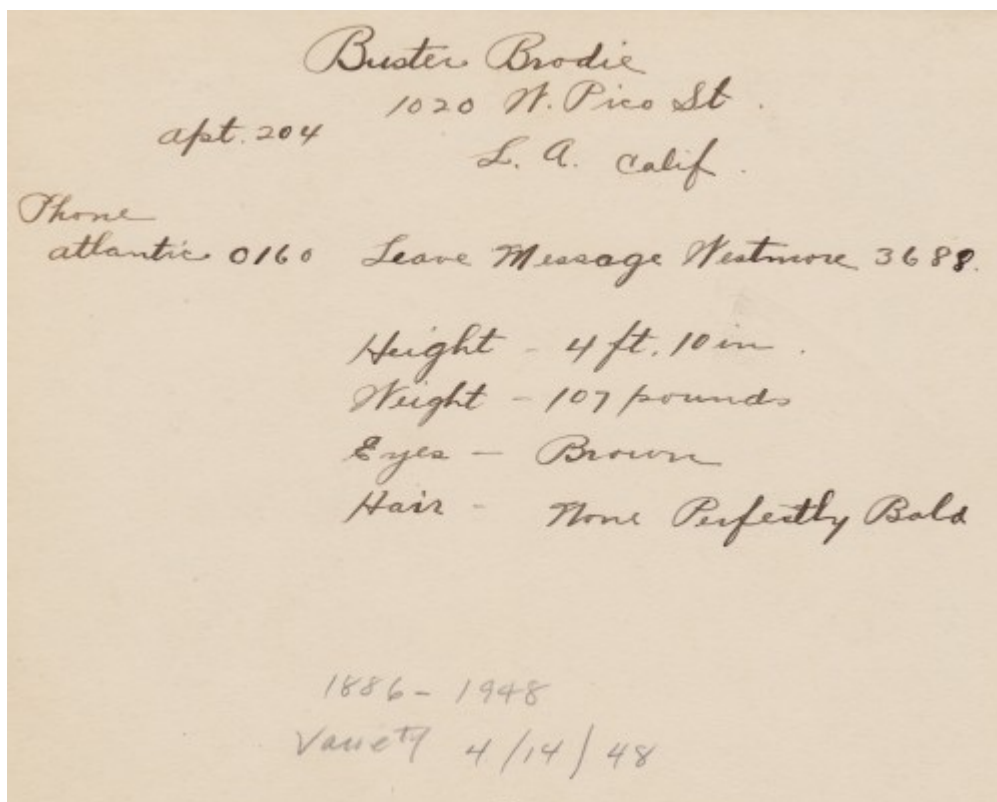 Buster Brodie
1020 W. Pico St.
apt. 204
L. A. Calif.
Phone
atlantic 0160 Leave Message Westmore 3688.
Height - 4 ft. 10 in.
Weight - 107 pounds
Eyes - Brown
Hair - None Perfestly Bald
1886 - 1948
Variety 4/14/48